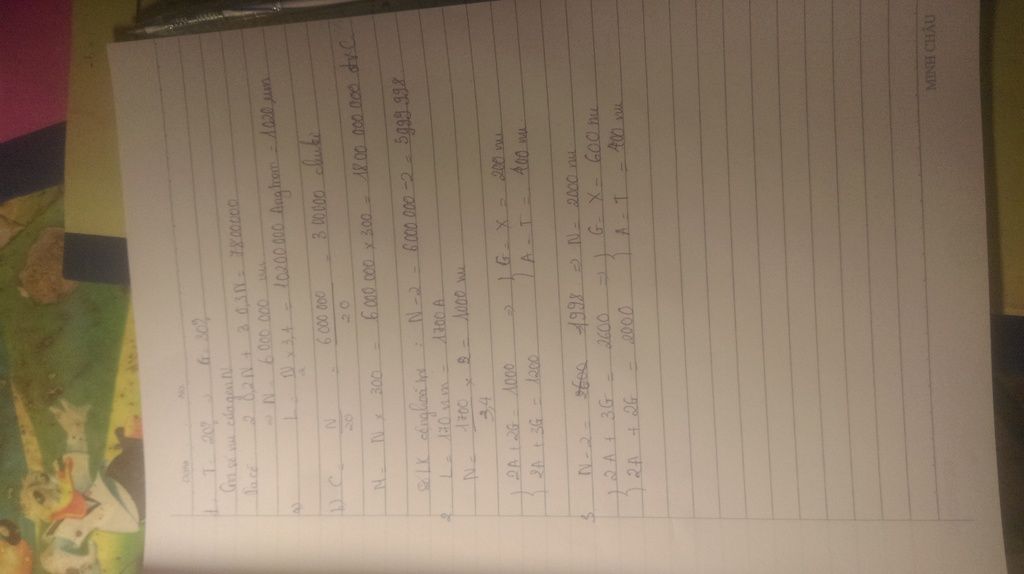 DATE NO
1. T = 20% , G = 30%
Gọi số nu của gen N
Ta có: 2.0,2N + 3.0,3N = 7800000
=> N = 6000 000 nu
a) L = N/2 × 3,4 = 10200 000 Angtrom = 1020 µm
b) C = N/20 = 6 000 000/20 = 300000 chu kì
M = N × 300 = 6000 000 × 300 = 1800 000 000 đvC
Số LK cộng hoá trị : N - 2 = 6000 000 - 2 = 5999 998
2 L = 170 nm = 1700 A
N = 1700/3,4 × 2 = 1000 nu
{ 2A + 2G = 1000 => { G = X = 200 nu
{ 2A + 3G = 1200 { A = T = 400 nu
3. N - 2 = 1998 => N = 2000 nu
{ 2A + 3G = 2600 => { G = X = 600 nu
{ 2A + 2G = 2000 { A = T = 400 nu
MINH CHÂU